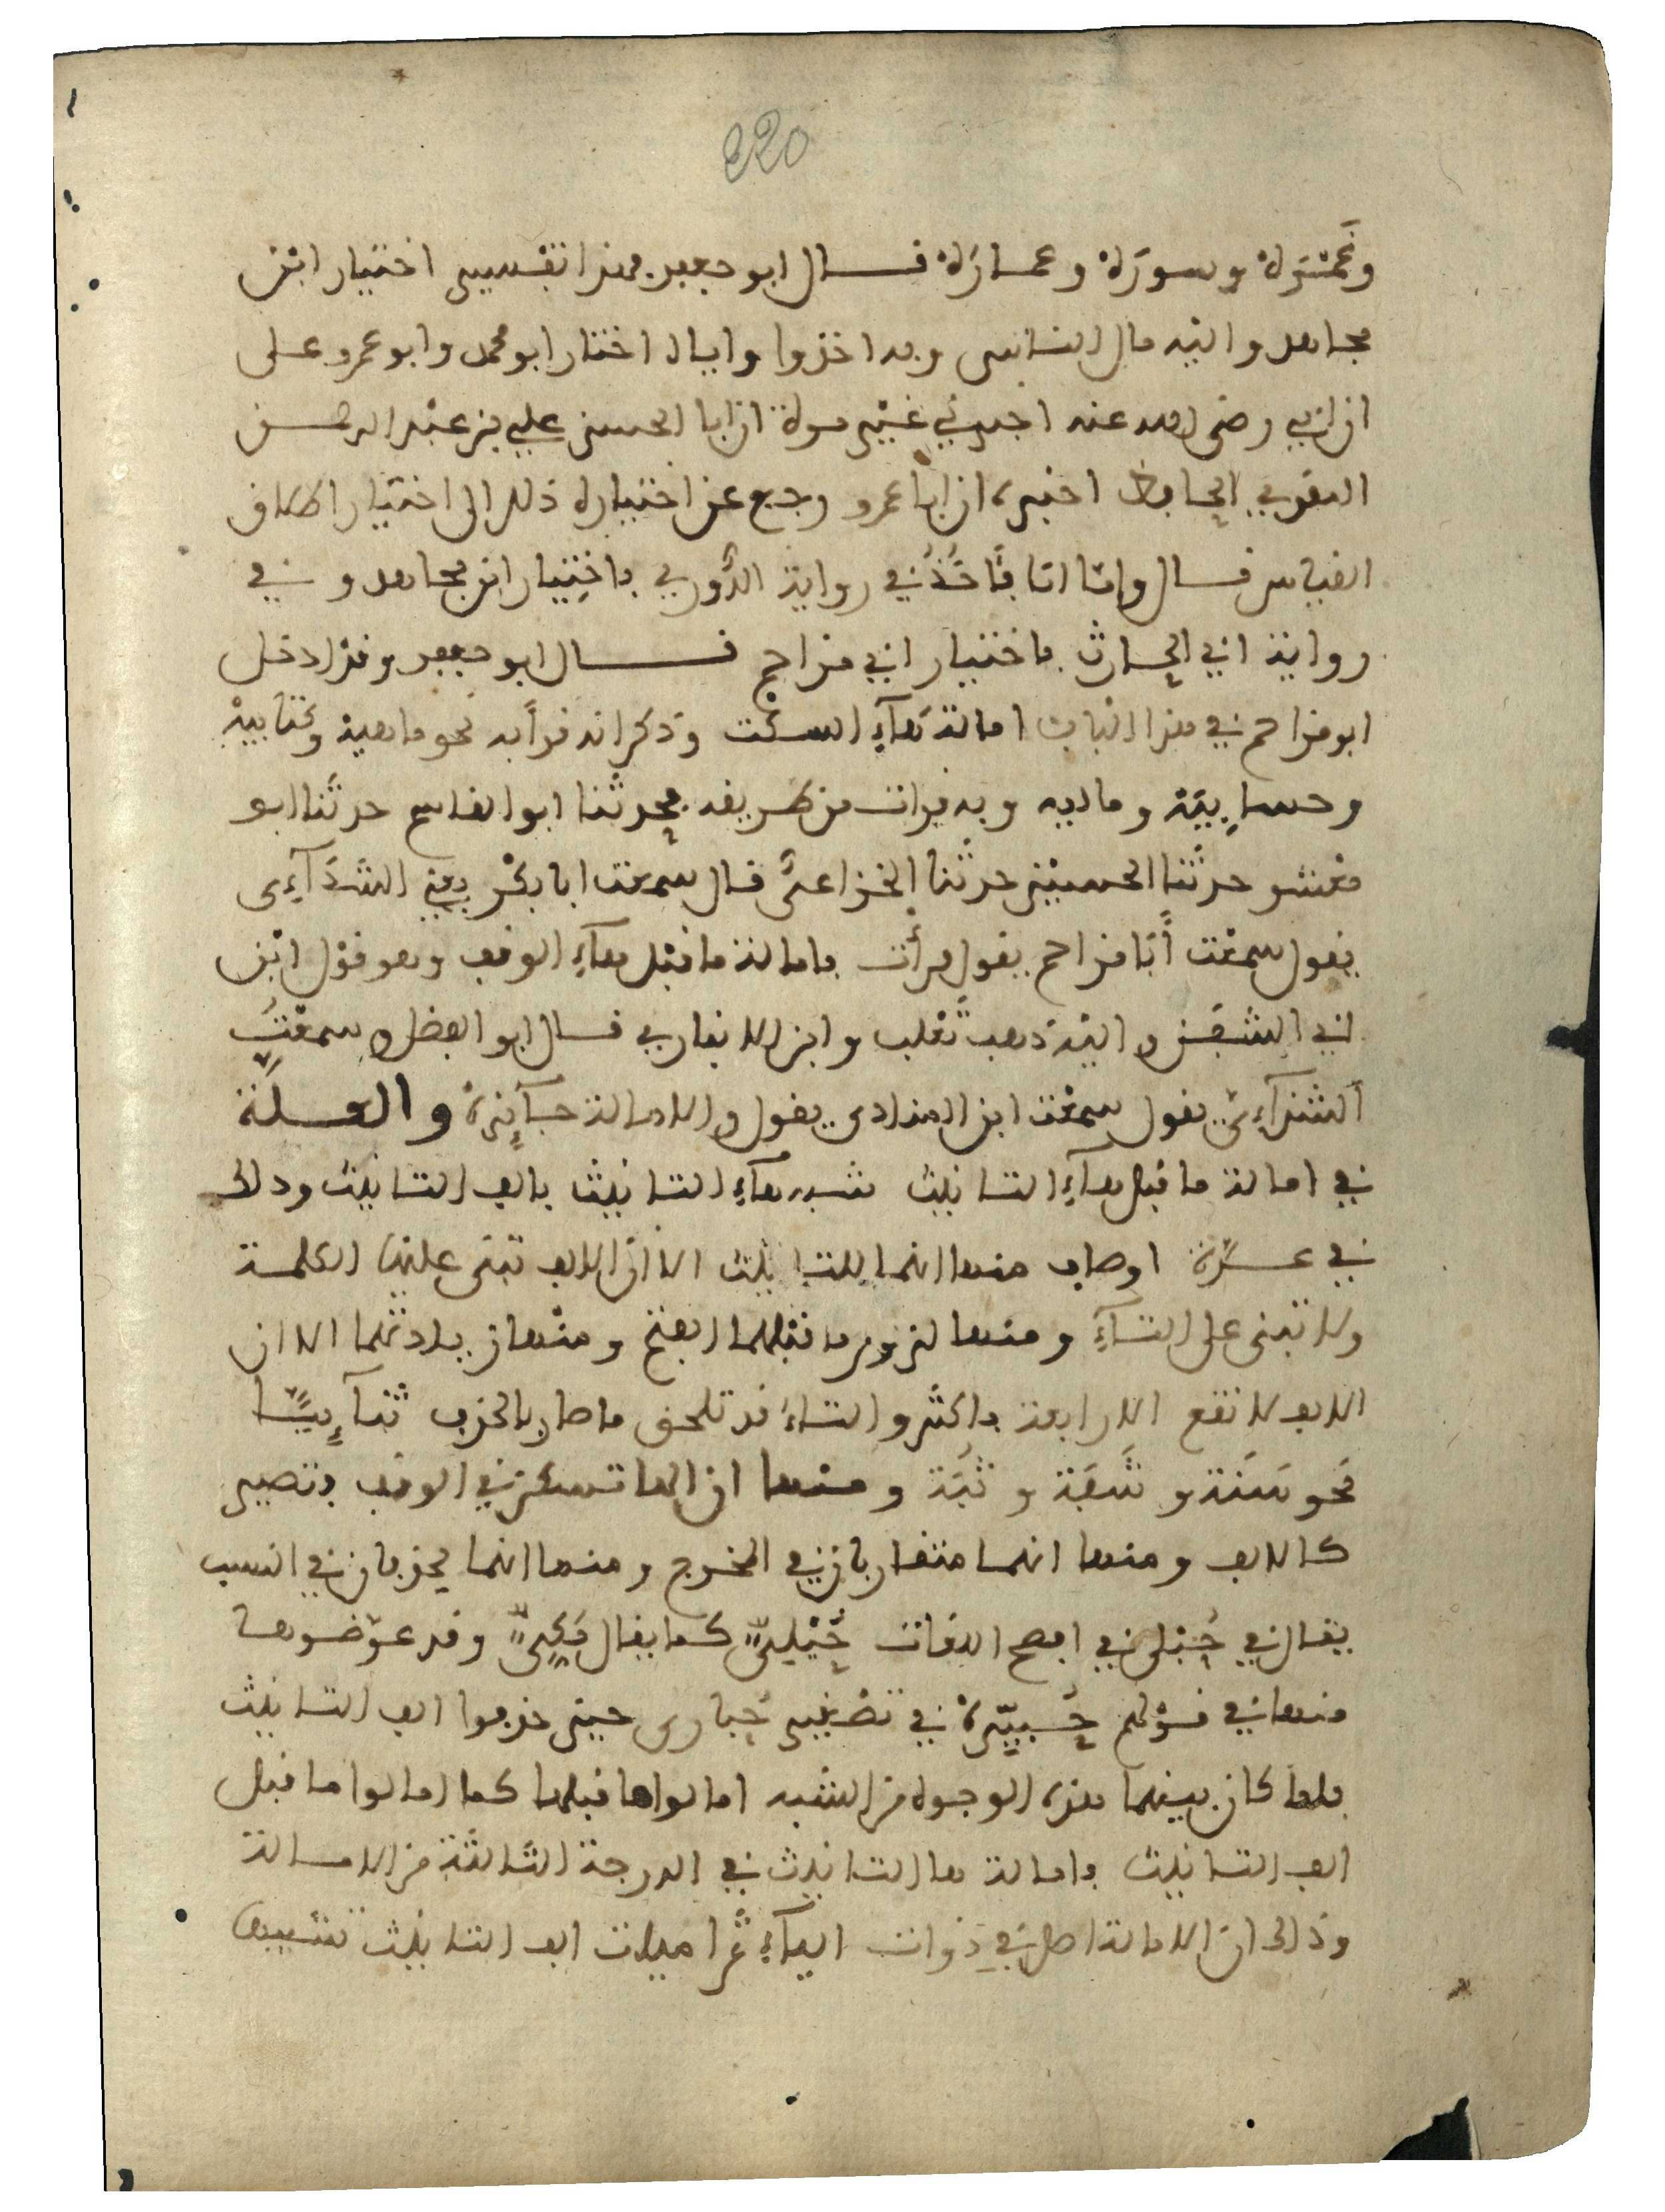 220
وغمرة وسورة وعمارة قال ابو جعفر فهذا تفسير اختيار ابن
مجاهد واليه مال الناس وبه اخذوا واياه اختار ابو محمد وابو عمرو على
ان ابي رضى الله عنه اخبرني غير مرة ان ابا الحسن علي بن عبد الرحمن
المقري الحافظ اخبره ان ابا عمرو رجع عن اختياره ذلك الى اختيار اطلاق
القياس قال وانا انا فآخذ في رواية الدوري باختيار ابن مجاهد وفي
رواية ابي الحارث باختيار ابي مزاحم قال ابو جعفر وقد ادخل
ابو مزاحم في هذا الباب امالة هآء السكت وذكر انه قرأ به نحو ماهيه وكتابيه
وحسابيه وماليه وبه قرات من طريقه فحدثنا ابو القاسم حدثنا ابو
معشر حدثنا الحسين حدثنا الخزاعى قال سمعت ابا بكر يعني الشذآءى
يقول سمعت أبا مزاحم يقول قرأت بامالة ما قبل هآء الوقف وهو قول ابن
ابي الشفق واليه ذهب ثعلب وابن الانباري قال ابو الفضل وسمعت
الشذآءى يقول سمعت ابن المنادى يقول والامالة جآئزة والعلة
في امالة ما قبل هآء التانيث شبه هآء التانيث بالف التانيث وذلك
في عدة اوصاف منها انهما للتانيث الا ان الالف تبنى عليها الكلمة
ولا تبنى على التآء ومنها لزوم ما قبلهما الفتح ومنها زيادتهما الا ان
الالف لا تقع الا رابعة فاكثر والتاء قد تلحق ما صار بالحذف ثنآئيا
نحو سنة وشفة وثبة ومنها ان الها تسكن في الوقف فتصير
كالالف ومنها انهما متقاربان في المخرج ومنها انهما يحذفان في النسب
يقال في حبلى في افصح اللغات حبليّ كما يقال مكيّ وقد عوضوها
منها في قولهم حبيرة في تصغير حبارى حين حذفوا الف التانيث
فلما كان بينهما هذه الوجوه من الشبه امالوا ما قبلها كما امالوا ما قبل
الف التانيث فامالة ها التانيث في الدرجة الثالثة من الامالة
وذلك ان الامالة اصل في ذوات اليآء ثم اميلت الف التانيث تشبيها